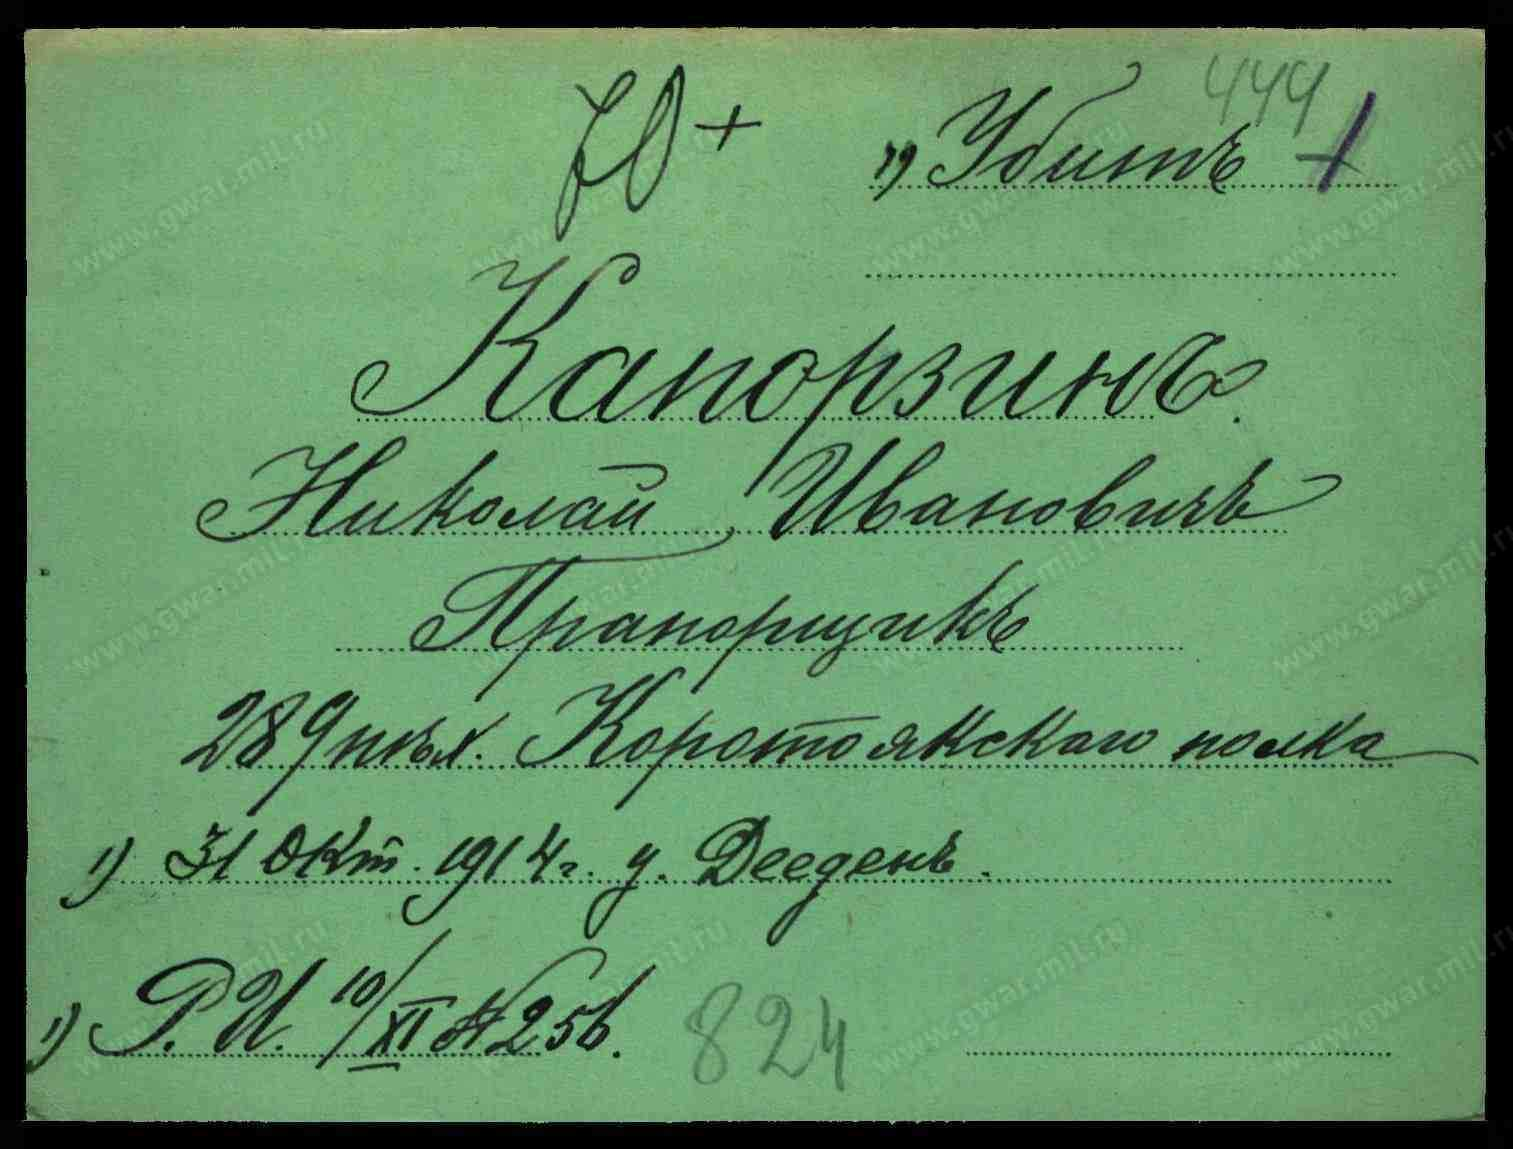 70 +
444
1) Убитъ +
Капорзинъ.
Николай Ивановичъ
Прапорщикъ
289 пѣх. Коротоякскаго полка
1) 31 Окт. 1914 г. у. Дееденъ.
1) Р. И. 10/XI № 256.
824
www.gwar.mil.ru